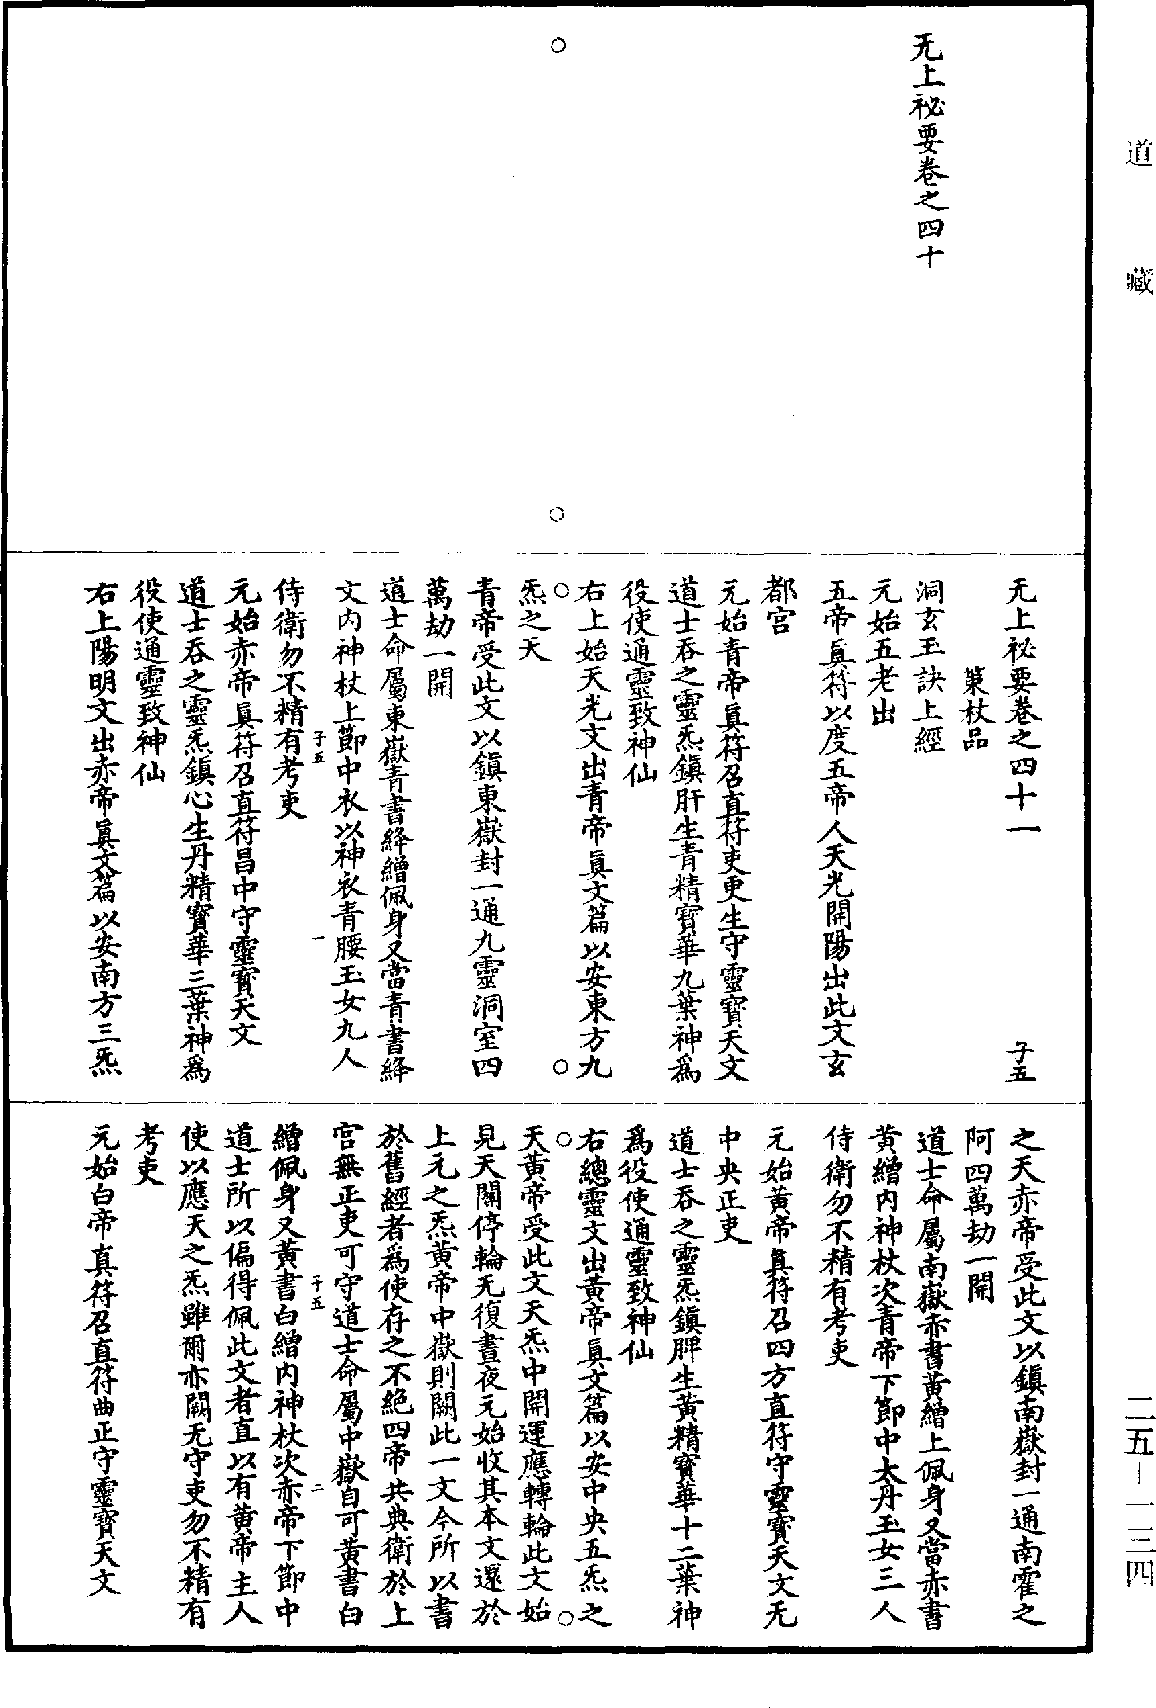 道藏
无上祕要卷之四十
无上祕要卷之四十一 子五
策杖品
洞玄玉訣上經
元始五老出
五帝真符以度五帝人天光開陽出此文玄
都宮
元始青帝真符召直符吏更生守靈寶天文
道士吞之靈炁鎮肝生青精寶華九葉神爲
役使通靈致神仙
右上始天光文出青帝真文篇以安東方九
炁之天
青帝受此文以鎮東嶽封一通九靈洞室四
萬劫一開
道士命屬東嶽青書絳繒佩身又當青書絳
文内神杖上節中衣以神衣青腰玉女九人
子五 一
侍衛勿不精有考吏
元始赤帝真符召直符昌中守靈寶天文
道士吞之靈炁鎮心生丹精寶華三葉神爲
役使通靈致神仙
右上陽明文出赤帝真文篇以安南方三炁
之天赤帝受此文以鎮南嶽封一通南霍之
阿四萬劫一開
道士命屬南嶽赤書黄繒上佩身又當赤書
黄繒内神杖次青帝下節中太丹玉女三人
侍衛勿不精有考吏
元始黄帝真符召四方直符守靈寶天文无
中央正吏
道士吞之靈炁鎮脾生黄精寶華十二葉神
爲役使通靈致神仙
右總靈文出黄帝真文篇以安中央五炁之
天黄帝受此文天炁中開運應轉輪此文始
見天關停輪无復晝夜元始收其本文還於
上元之炁黄帝中嶽則闕此一文今所以書
於舊經者爲使存之不絶四帝共典衛於上
宫無正吏可守道士命屬中嶽自可黄書白
子五 二
繒佩身又黄書白繒内神杖次赤帝下節中
道士所以偏得佩此文者直以有黄帝主人
使以應天之炁雖爾亦闕无守吏勿不精有
考吏
元始白帝真符召直符曲正守靈寶天文
二五－一三四